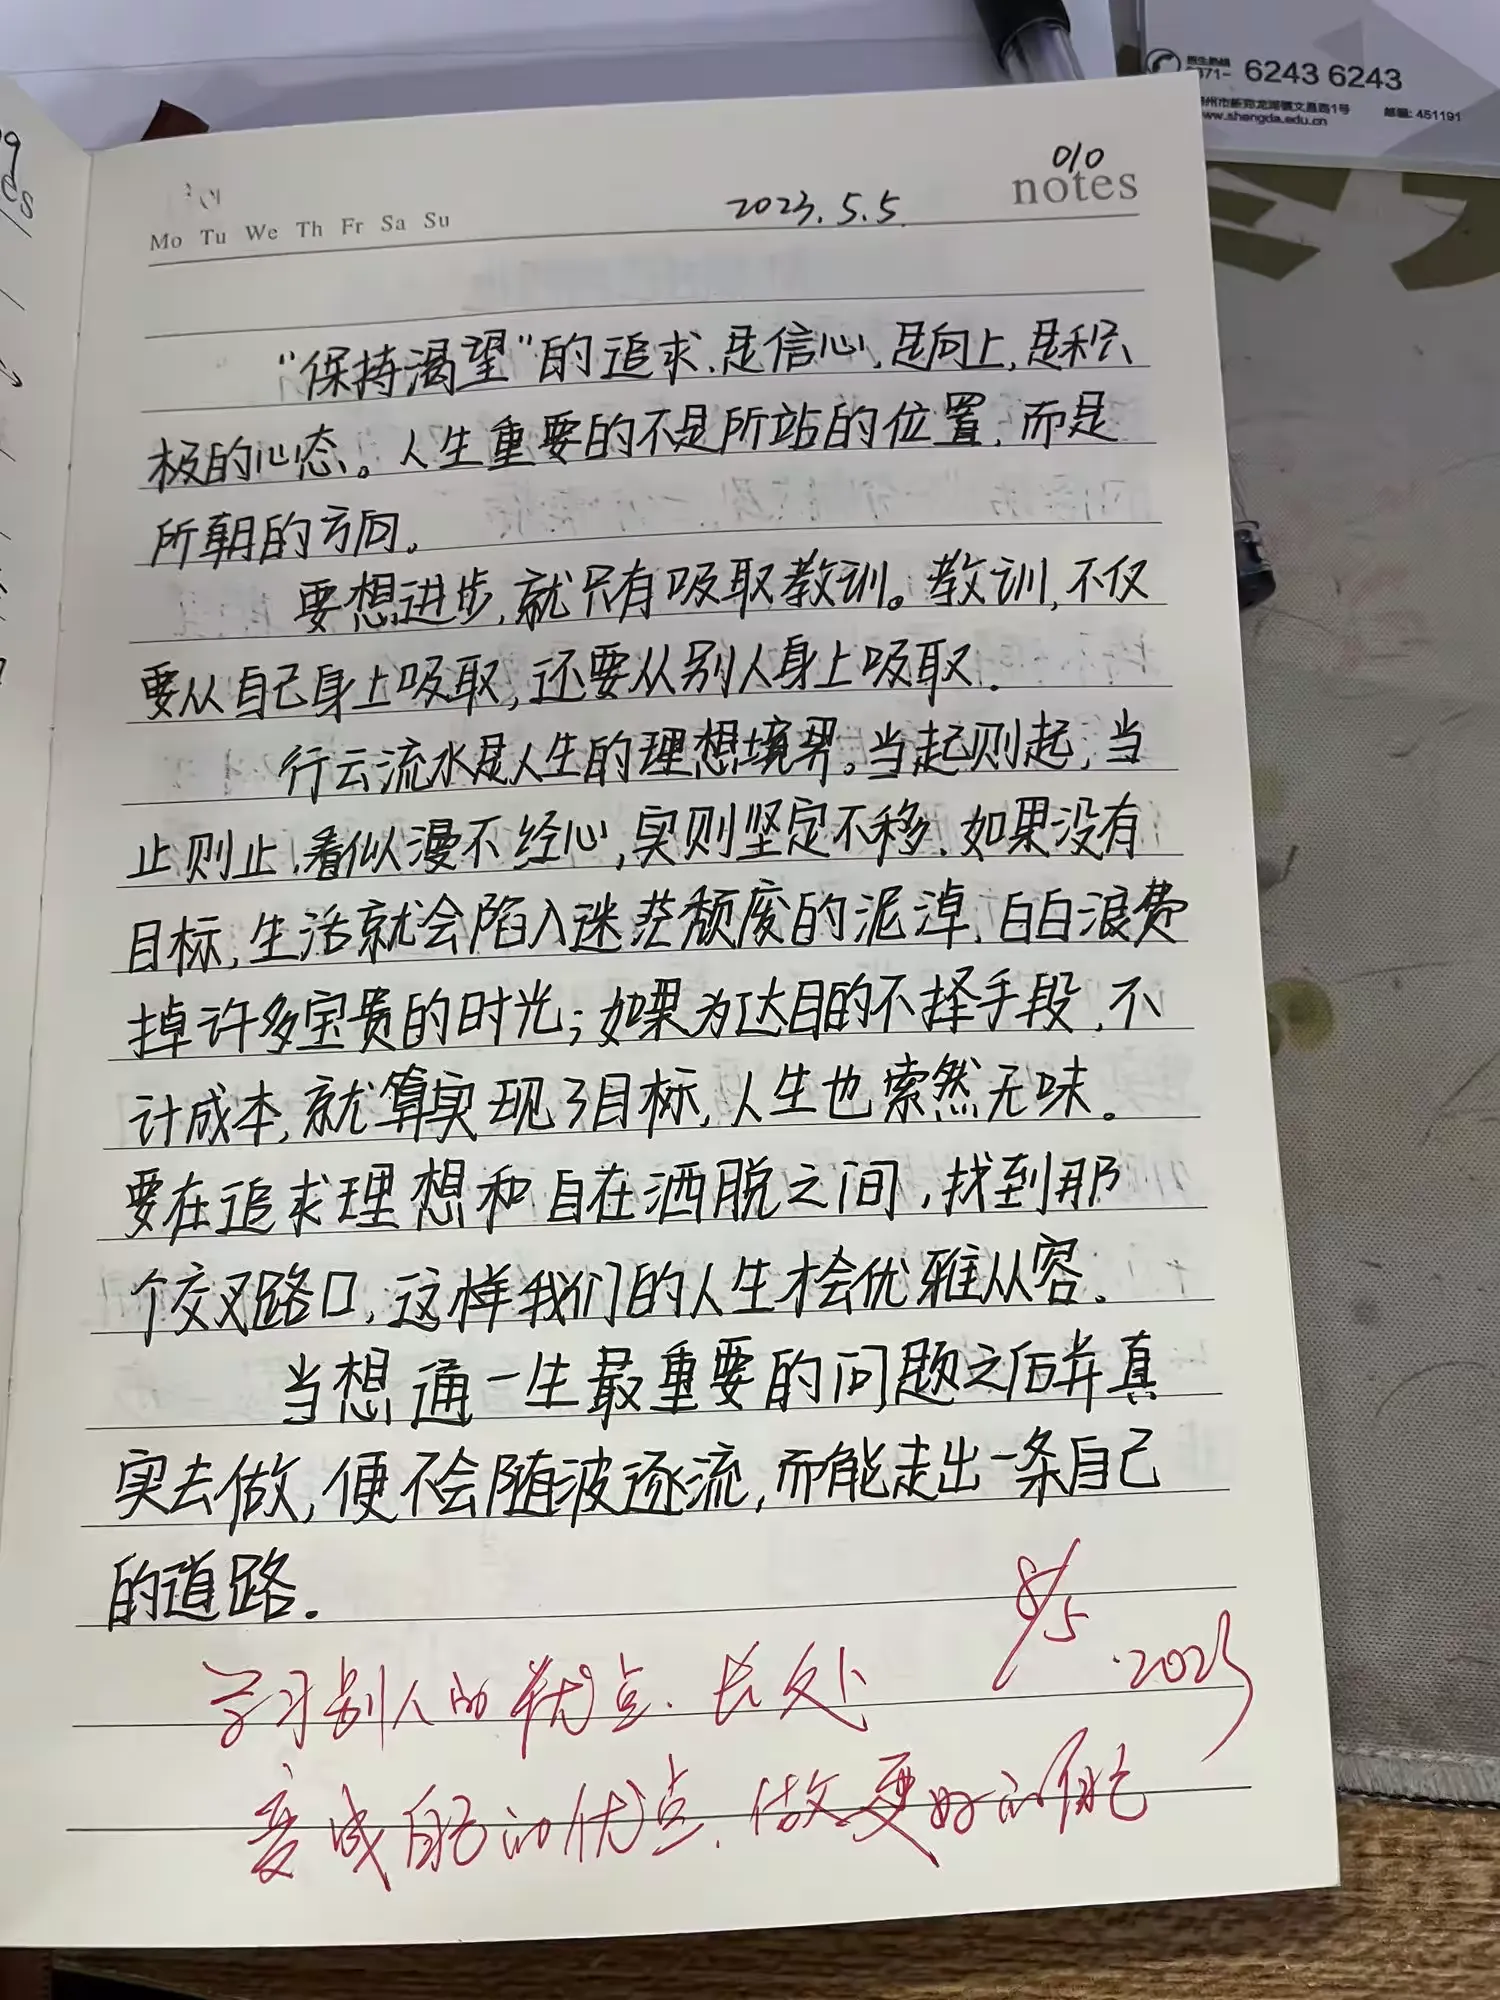 招生热线
0371- 6243 6243
州市新郑龙湖镇文昌路1号 邮编: 451191
www.shengda.edu.cn
010
notes
2023.5.5.
Mo Tu We Th Fr Sa Su
“保持渴望”的追求,是信心,是向上,是积
极的心态。人生重要的不是所站的位置,而是
所朝的方向。
要想进步,就只有吸取教训。教训,不仅
要从自己身上吸取,还要从别人身上吸取.
行云流水是人生的理想境界。当起则起,当
止则止,看似漫不经心,实则坚定不移.如果没有
目标,生活就会陷入迷茫颓废的泥淖,白白浪费
掉许多宝贵的时光;如果为达目的不择手段,不
计成本,就算实现了目标,人生也索然无味。
要在追求理想和自在洒脱之间,找到那
个交叉路口,这样我们的人生才会优雅从容.
当想通一生最重要的问题之后并真
实去做,便不会随波逐流,而能走出一条自己
的道路.
8/5
.2023
学习别人的优点.长处
变成自己的优点.做更好的自己